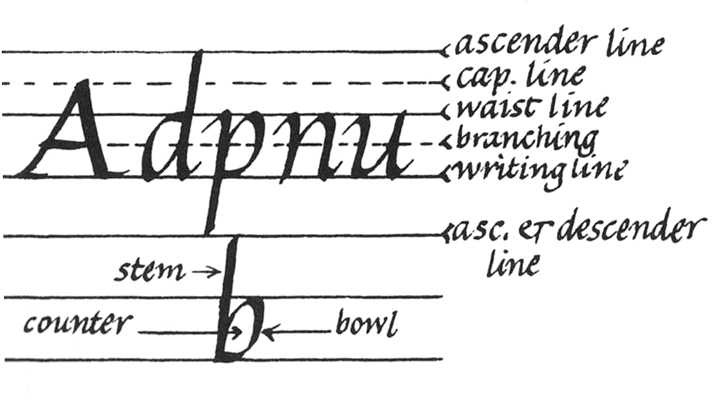 ascender line
cap. line
waist line
Adpnu
branching
writing line
asc. & descender
line
stem
b
counter
bowl